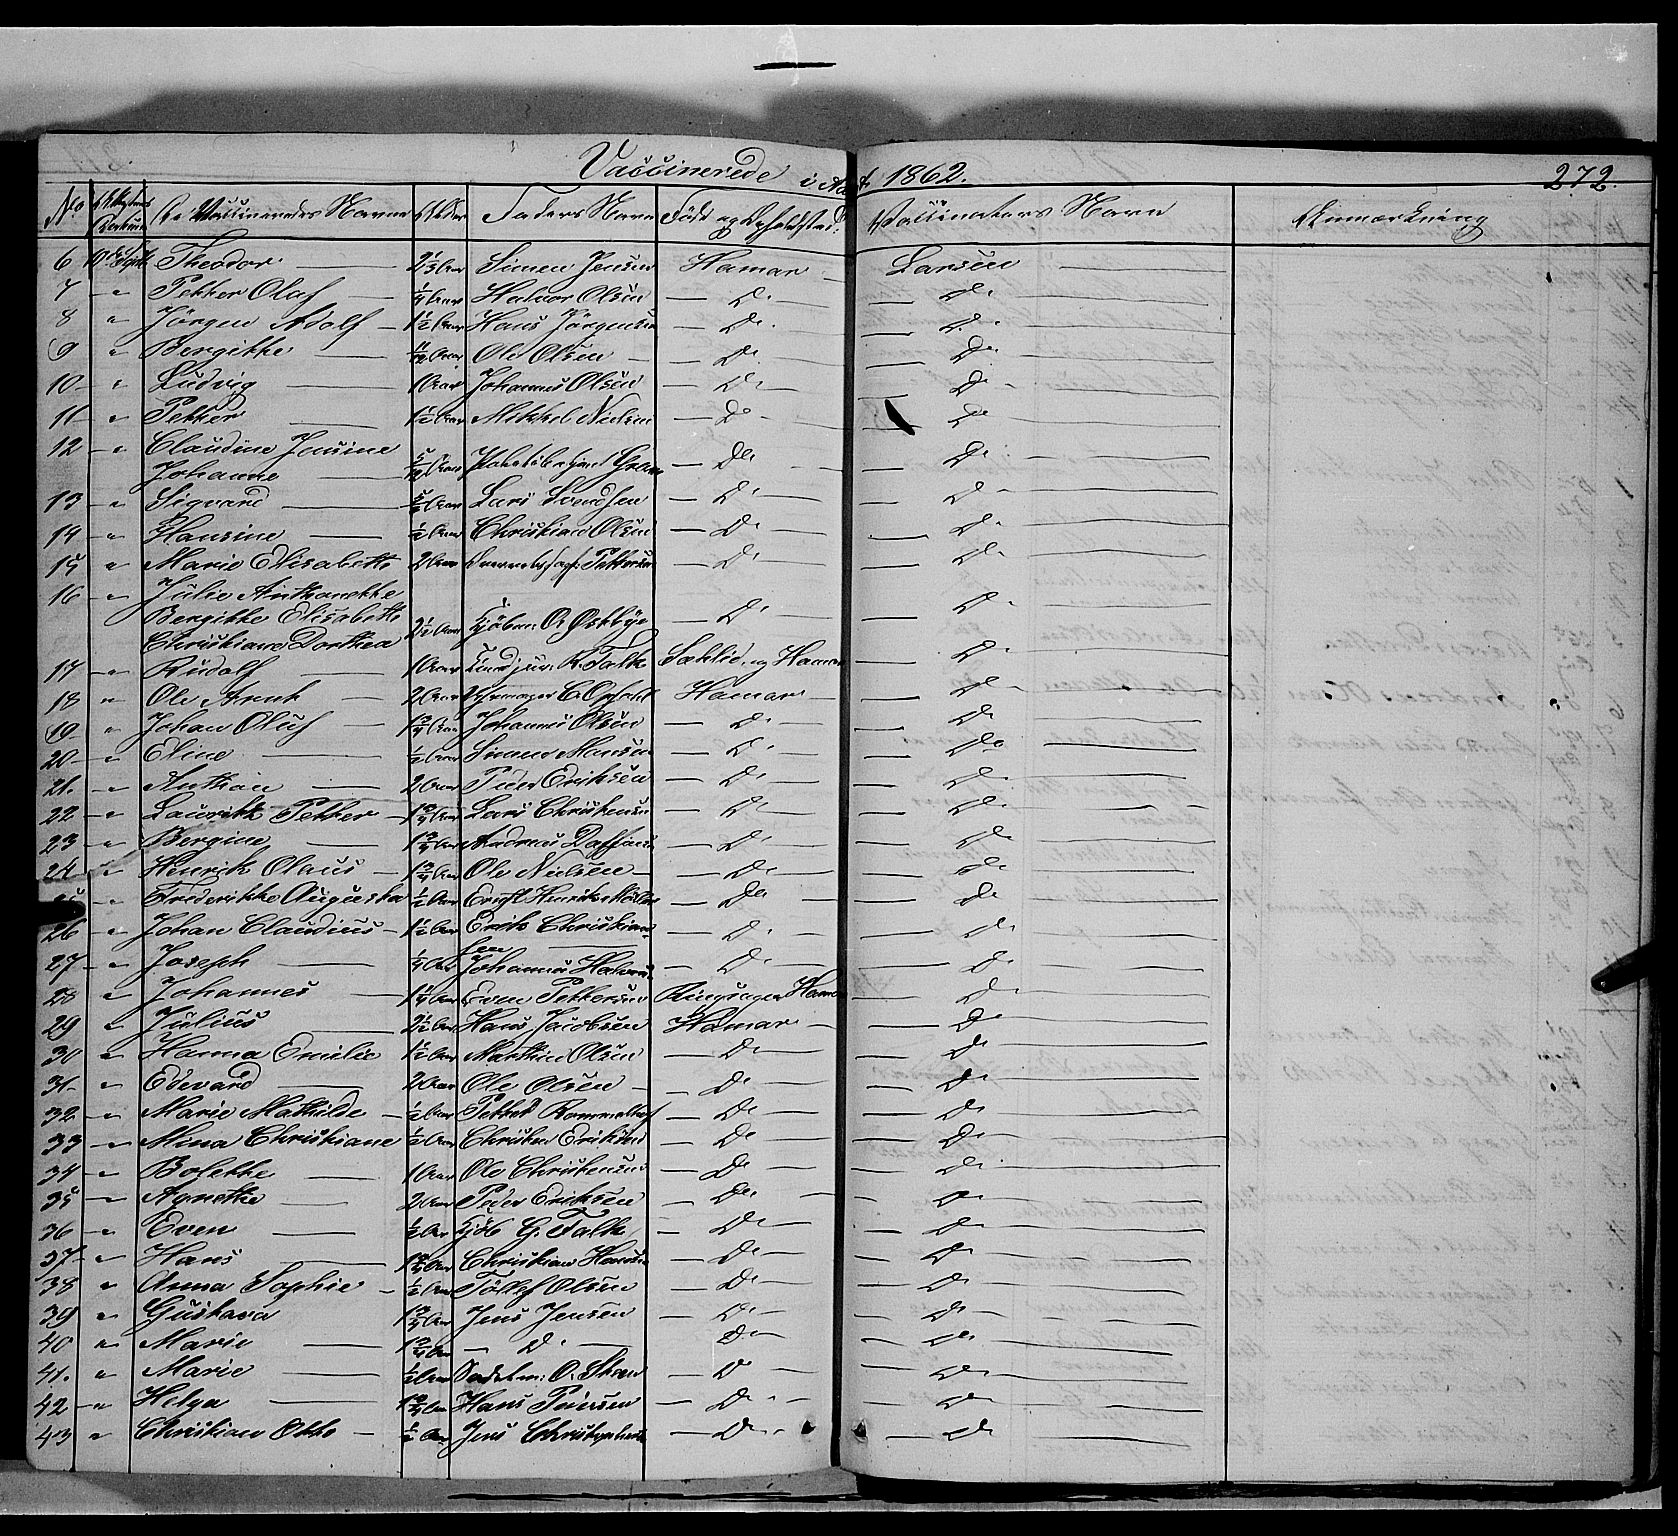 Vaccinerede i Aaret 1862. 272.
No De Vaccineredes Navne Alder Faders Navn Födt og Opholdsted. Vaccinateurs Navn Anmærkning
6 10de Septbr Theodor — 2 1/3 Aar Simen Jensen Hamar — Larsen —
7 — " Petter Olaf — 1/4 Aar Halvor Olsen — Do — — Do —
8 " Jörgen Adolf — 1 1/2 Aar Hans Jörgensen — Do — — Do —
9 " Bergitte — 11/12 Aar Ole Olsen — — Do — — Do —
10 — " Ludvig — 1 Aar Johannes Olsen — Do — — Do —
11 — " Petter — 1 1/2 Aar Mikkel Nielsen — Do — — Do —
12 — " Claudine Jensine
Johanne — 5/12 Aar Gram — Do — — Do —
13 — " Sigvard — Aar Lars Svendsen — Do — — Do —
14 — " Hansine — 1/2 Aar Christian Olsen — Do — — Do —
15 " Marie Elisabeth 2 Aar Pettersen — Do — — Do —
16 — " Julie Anthonette
Bergitte Elisabeth
Christiane Dorthea 2 1/2 Aar Kjöbm: O. Östbye — Do — — Do —
17 — " Rudolf — 1 Aar R. Falk Hamar — Do —
18 " Ole Arnt — 2 Aar Uhrmager C. Opsahl Hamar — — Do —
19 — " Johan Oluf — 1 3/4 Aar Johannes Olsen — Do — — Do —
20 — " Eline — 1/2 Aar Simen Hansen — Do — — Do —
21. — " Anthon — 2 Aar Peder Eriksen — Do — — Do —
22 — " Lauritz Petter — 1 3/4 Aar Lars Christensen — Do — — Do —
23 — " Bergine — 1 3/4 Aar Andreas — Do — — Do —
24 — " Henrik Olaus — 1 3/4 Aar Ole Nielsen — — Do — — Do —
25 " Frederikke Augusta 1/2 Aar Henrik — Do — — Do —
26 " Johan Claudius — 1 1/2 Aar Erik Christian-
sen — — Do — — Do —
27 — " Joseph — 1/4 Aar Johannes Halvorsen — Do — — Do —
28 " Johannes — 1 1/4 Aar Even Pettersen Ringsager, Hamar — Do —
29 " Julius — 2 1/2 Aar Hans Jacobsen Hamar — — Do —
30 " Hanna Emilie 1 1/2 Aar Martin Olsen — Do — — Do —
31 — " Edevard — 2 Aar Ole Olsen — — Do — — Do —
32 — " Marie Mathilde — 1/2 Aar Petter — Do — — Do —
33 — " Mina Christiane 1/2 Aar Christen Eriksen — Do — — Do —
34 — " Bolette — 1 Aar Ole Christensen — Do — — Do —
35 " Agnethe — 2 Aar Peder Eriksen — Do — — Do —
36 — " Even — 1/2 Aar Kjöb G. Falk — Do — — Do —
37 — " Hans — 1 3/4 Aar Christian Hansen — Do — — Do —
38 " Anna Sophie — 1/2 Aar Tollef Olsen — Do — — Do —
39 " Gustava 1 3/4 Aar Jens Jensen — Do — — Do —
40 " Marie — 1 3/4 Aar — Do — — Do — — Do —
41. " Marie — 1/2 Aar O. — Do — — Do —
42 — " Helga — 1 3/4 Aar Hans Pedersen — Do — — Do —
43 " Christian Otto — 1/2 Aar Jens Christophersen — Do — — Do —